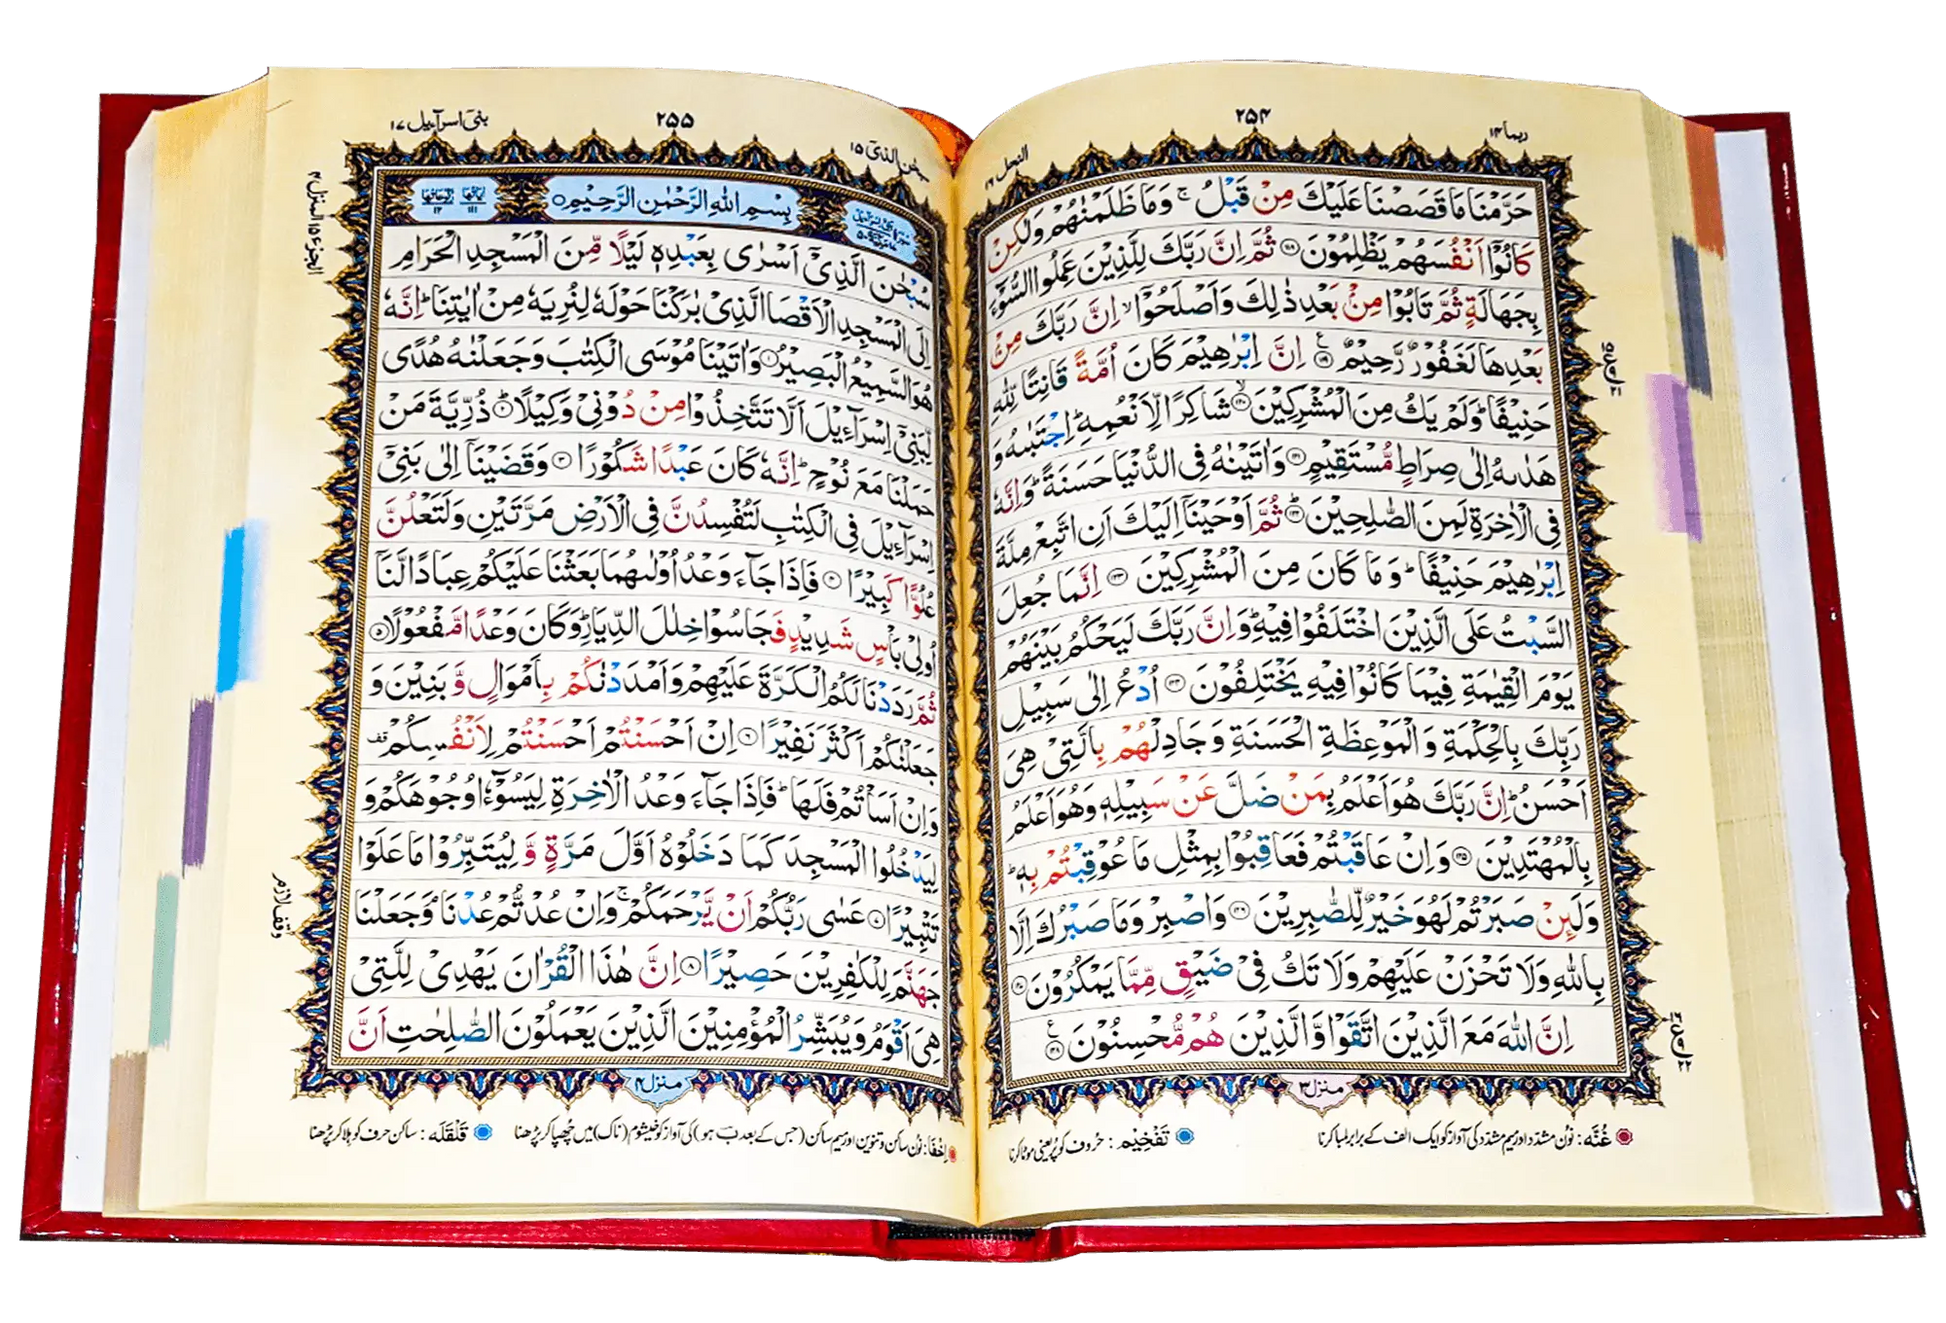 ربما ۱۴
۲۵۴
النحل ۱۶
حَرَّمْنَا مَا قَصَصْنَا عَلَيْكَ مِنْ قَبْلُ ۚ وَمَا ظَلَمْنٰهُمْ وَلٰكِنْ
كَانُوْٓا اَنْفُسَهُمْ يَظْلِمُوْنَ ﴿۱۱۸﴾ ثُمَّ اِنَّ رَبَّكَ لِلَّذِيْنَ عَمِلُوا السُّوْٓءَ
بِجَهَالَةٍ ثُمَّ تَابُوْا مِنْۢ بَعْدِ ذٰلِكَ وَاَصْلَحُوْٓا ۙ اِنَّ رَبَّكَ مِنْۢ
بَعْدِهَا لَغَفُوْرٌ رَّحِيْمٌ ﴿۱۱۹﴾ اِنَّ اِبْرٰهِيْمَ كَانَ اُمَّةً قَانِتًا لِّلّٰهِ
حَنِيْفًا ؕ وَلَمْ يَكُ مِنَ الْمُشْرِكِيْنَ ﴿۱۲۰﴾ شَاكِرًا لِّاَنْعُمِهٖ ؕ اِجْتَبٰىهُ وَ
هَدٰىهُ اِلٰى صِرَاطٍ مُّسْتَقِيْمٍ ﴿۱۲۱﴾ وَاٰتَيْنٰهُ فِى الدُّنْيَا حَسَنَةً ؕ وَاِنَّهٗ
فِى الْاٰخِرَةِ لَمِنَ الصّٰلِحِيْنَ ﴿۱۲۲﴾ ثُمَّ اَوْحَيْنَآ اِلَيْكَ اَنِ اتَّبِعْ مِلَّةَ
اِبْرٰهِيْمَ حَنِيْفًا ؕ وَمَا كَانَ مِنَ الْمُشْرِكِيْنَ ﴿۱۲۳﴾ اِنَّمَا جُعِلَ
السَّبْتُ عَلَى الَّذِيْنَ اخْتَلَفُوْا فِيْهِ ؕ وَاِنَّ رَبَّكَ لَيَحْكُمُ بَيْنَهُمْ
يَوْمَ الْقِيٰمَةِ فِيْمَا كَانُوْا فِيْهِ يَخْتَلِفُوْنَ ﴿۱۲۴﴾ اُدْعُ اِلٰى سَبِيْلِ
رَبِّكَ بِالْحِكْمَةِ وَالْمَوْعِظَةِ الْحَسَنَةِ وَجَادِلْهُمْ بِالَّتِىْ هِىَ
اَحْسَنُ ؕ اِنَّ رَبَّكَ هُوَ اَعْلَمُ بِمَنْ ضَلَّ عَنْ سَبِيْلِهٖ وَهُوَ اَعْلَمُ
بِالْمُهْتَدِيْنَ ﴿۱۲۵﴾ وَاِنْ عَاقَبْتُمْ فَعَاقِبُوْا بِمِثْلِ مَا عُوْقِبْتُمْ بِهٖ ؕ
وَلَئِنْ صَبَرْتُمْ لَهُوَ خَيْرٌ لِّلصّٰبِرِيْنَ ﴿۱۲۶﴾ وَاصْبِرْ وَمَا صَبْرُكَ اِلَّا
بِاللّٰهِ وَلَا تَحْزَنْ عَلَيْهِمْ وَلَا تَكُ فِىْ ضَيْقٍ مِّمَّا يَمْكُرُوْنَ ﴿۱۲۷﴾
اِنَّ اللّٰهَ مَعَ الَّذِيْنَ اتَّقَوْا وَّالَّذِيْنَ هُمْ مُّحْسِنُوْنَ ﴿۱۲۸﴾
منزل ۳
غُنَّه: نون مشدّد اور میم مشدّد کی آواز کو ایک الف کے برابر لمبا کرنا
تَفْخِيْم: حروف کو پُر یعنی موٹا کرنا
سبحٰن الذیٓ ۱۵
۲۵۵
بنیٓ اسرآءیل ۱۷
الجزء ۱۵ المنزل ۴
بِسْمِ اللّٰهِ الرَّحْمٰنِ الرَّحِيْمِ
اٰياتها ۱۱۱
ركوعاتها ۱۲
سُبْحٰنَ الَّذِىْٓ اَسْرٰى بِعَبْدِهٖ لَيْلًا مِّنَ الْمَسْجِدِ الْحَرَامِ
اِلَى الْمَسْجِدِ الْاَقْصَا الَّذِىْ بٰرَكْنَا حَوْلَهٗ لِنُرِيَهٗ مِنْ اٰيٰتِنَا ؕ اِنَّهٗ
هُوَ السَّمِيْعُ الْبَصِيْرُ ﴿۱﴾ وَاٰتَيْنَا مُوْسَى الْكِتٰبَ وَجَعَلْنٰهُ هُدًى
لِّبَنِىْٓ اِسْرَآءِيْلَ اَلَّا تَتَّخِذُوْا مِنْ دُوْنِىْ وَكِيْلًا ﴿۲﴾ ذُرِّيَّةَ مَنْ
حَمَلْنَا مَعَ نُوْحٍ ؕ اِنَّهٗ كَانَ عَبْدًا شَكُوْرًا ﴿۳﴾ وَقَضَيْنَآ اِلٰى بَنِىْٓ
اِسْرَآءِيْلَ فِى الْكِتٰبِ لَتُفْسِدُنَّ فِى الْاَرْضِ مَرَّتَيْنِ وَلَتَعْلُنَّ
عُلُوًّا كَبِيْرًا ﴿۴﴾ فَاِذَا جَآءَ وَعْدُ اُوْلٰىهُمَا بَعَثْنَا عَلَيْكُمْ عِبَادًا لَّنَآ
اُولِىْ بَاْسٍ شَدِيْدٍ فَجَاسُوْا خِلٰلَ الدِّيَارِ ؕ وَكَانَ وَعْدًا مَّفْعُوْلًا ﴿۵﴾
ثُمَّ رَدَدْنَا لَكُمُ الْكَرَّةَ عَلَيْهِمْ وَاَمْدَدْنٰكُمْ بِاَمْوَالٍ وَّبَنِيْنَ وَ
جَعَلْنٰكُمْ اَكْثَرَ نَفِيْرًا ﴿۶﴾ اِنْ اَحْسَنْتُمْ اَحْسَنْتُمْ لِاَنْفُسِكُمْ قف
وَاِنْ اَسَاْتُمْ فَلَهَا ؕ فَاِذَا جَآءَ وَعْدُ الْاٰخِرَةِ لِيَسُوْٓءٗا وُجُوْهَكُمْ وَ
لِيَدْخُلُوا الْمَسْجِدَ كَمَا دَخَلُوْهُ اَوَّلَ مَرَّةٍ وَّلِيُتَبِّرُوْا مَا عَلَوْا
تَتْبِيْرًا ﴿۷﴾ عَسٰى رَبُّكُمْ اَنْ يَّرْحَمَكُمْ ۚ وَاِنْ عُدْتُّمْ عُدْنَا ۘ وَجَعَلْنَا
جَهَنَّمَ لِلْكٰفِرِيْنَ حَصِيْرًا ﴿۸﴾ اِنَّ هٰذَا الْقُرْاٰنَ يَهْدِىْ لِلَّتِىْ
هِىَ اَقْوَمُ وَيُبَشِّرُ الْمُؤْمِنِيْنَ الَّذِيْنَ يَعْمَلُوْنَ الصّٰلِحٰتِ اَنَّ
وقف لازم
منزل ۴
اِخْفَا: نون ساکن و تنوین اور میم ساکن (جس کے بعد ب ہو) کی آواز کو خیشوم (ناک) میں چھپا کر پڑھنا
قَلْقَلَه: ساکن حرف کو ہلا کر پڑھنا